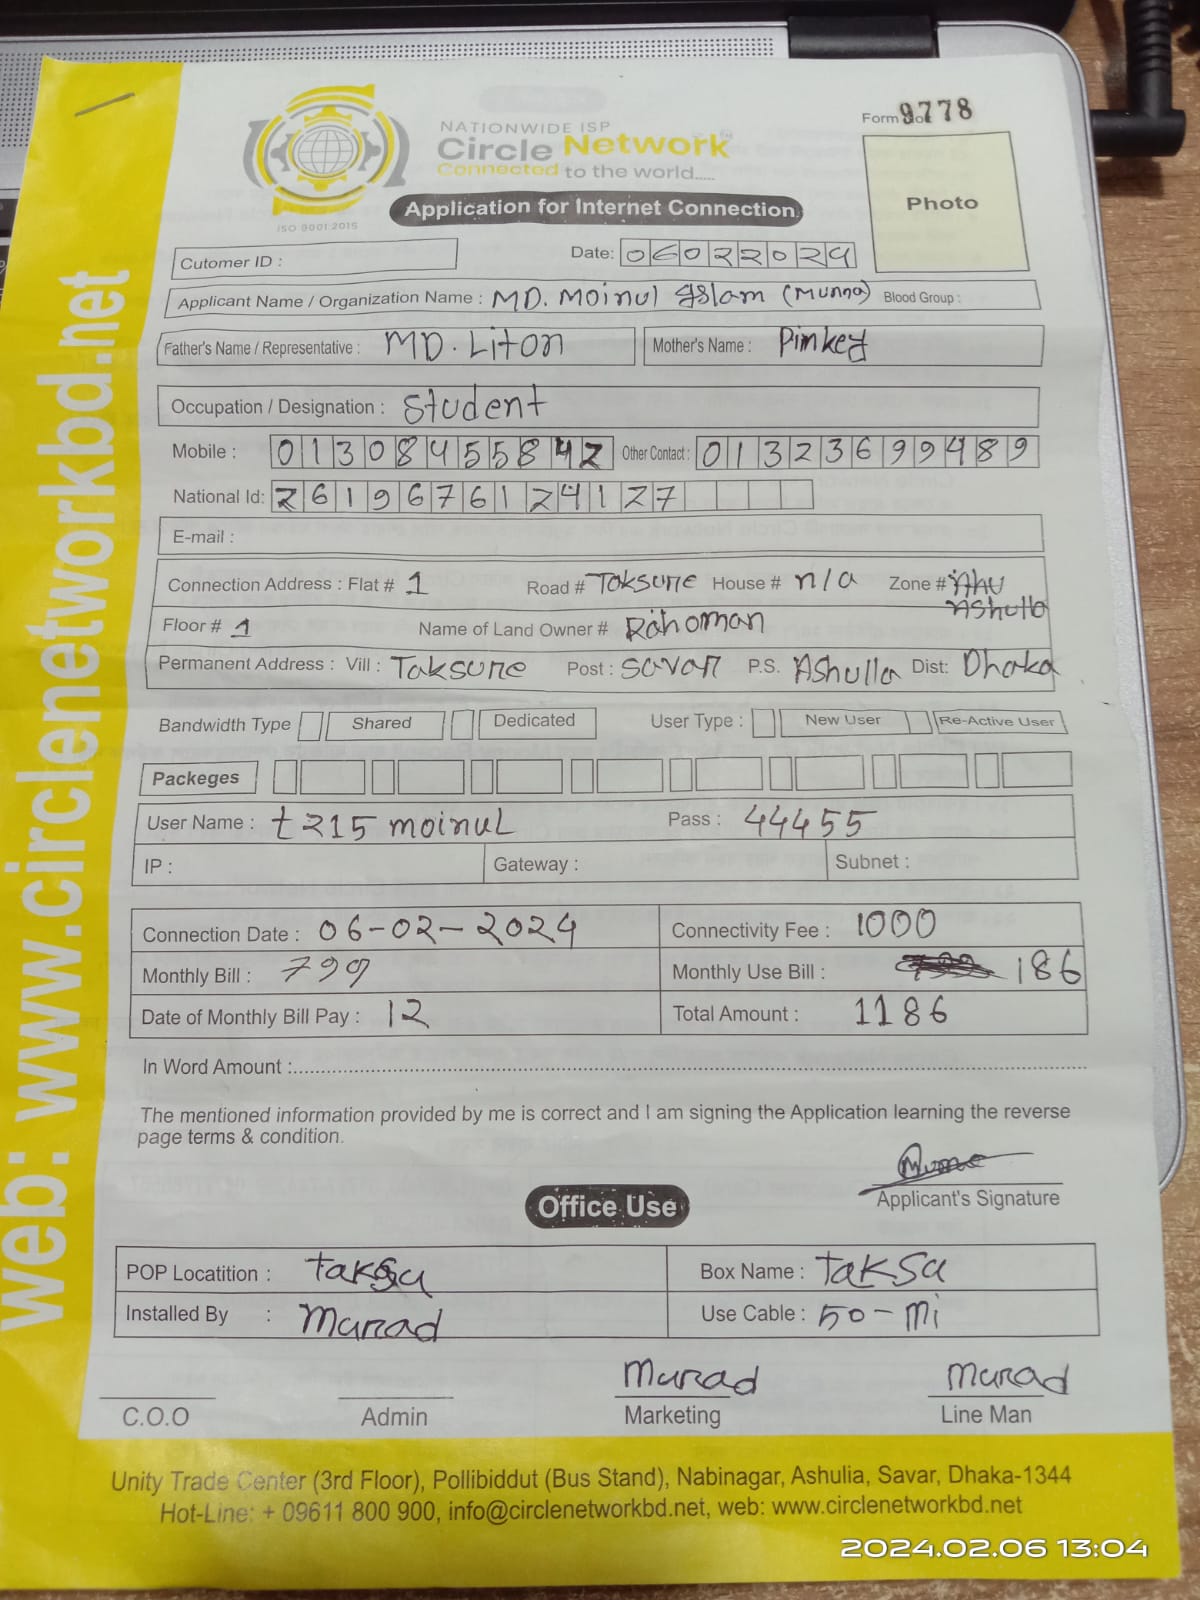 web: www.circlenetworkbd.net
NATIONWIDE ISP
Circle Network
Connected to the world.....
ISO 9001:2015
Form No. 9778
Photo
Application for Internet Connection
Cutomer ID :
Date: 06022024
Applicant Name / Organization Name : MD. Moinul Islam (Munna) Blood Group :
Father's Name / Representative : MD. Liton Mother's Name : Pimkey
Occupation / Designation : Student
Mobile : 01308455842 Other Contact : 01323699489
National Id: 2619676124127
E-mail :
Connection Address : Flat # 1 Road # Taksure House # n/a Zone #
Ashulla
Floor # 1 Name of Land Owner # Rahoman
Permanent Address : Vill : Taksure Post : Savar P.S. Ashulla Dist: Dhaka
Bandwidth Type Shared Dedicated User Type : New User Re-Active User
Packeges
User Name : t215 moinul Pass : 44455
IP : Gateway : Subnet :
Connection Date : 06-02-2024 Connectivity Fee : 1000
Monthly Bill : 799 Monthly Use Bill : 186
Date of Monthly Bill Pay : 12 Total Amount : 1186
In Word Amount :
The mentioned information provided by me is correct and I am signing the Application learning the reverse
page terms & condition.
Applicant's Signature
Office Use
POP Locatition : taksu Box Name : taksu
Installed By : Murad Use Cable : 50-mi
Murad Murad
C.O.O Admin Marketing Line Man
Unity Trade Center (3rd Floor), Pollibiddut (Bus Stand), Nabinagar, Ashulia, Savar, Dhaka-1344
Hot-Line: + 09611 800 900, info@circlenetworkbd.net, web: www.circlenetworkbd.net
2024.02.06 13:04